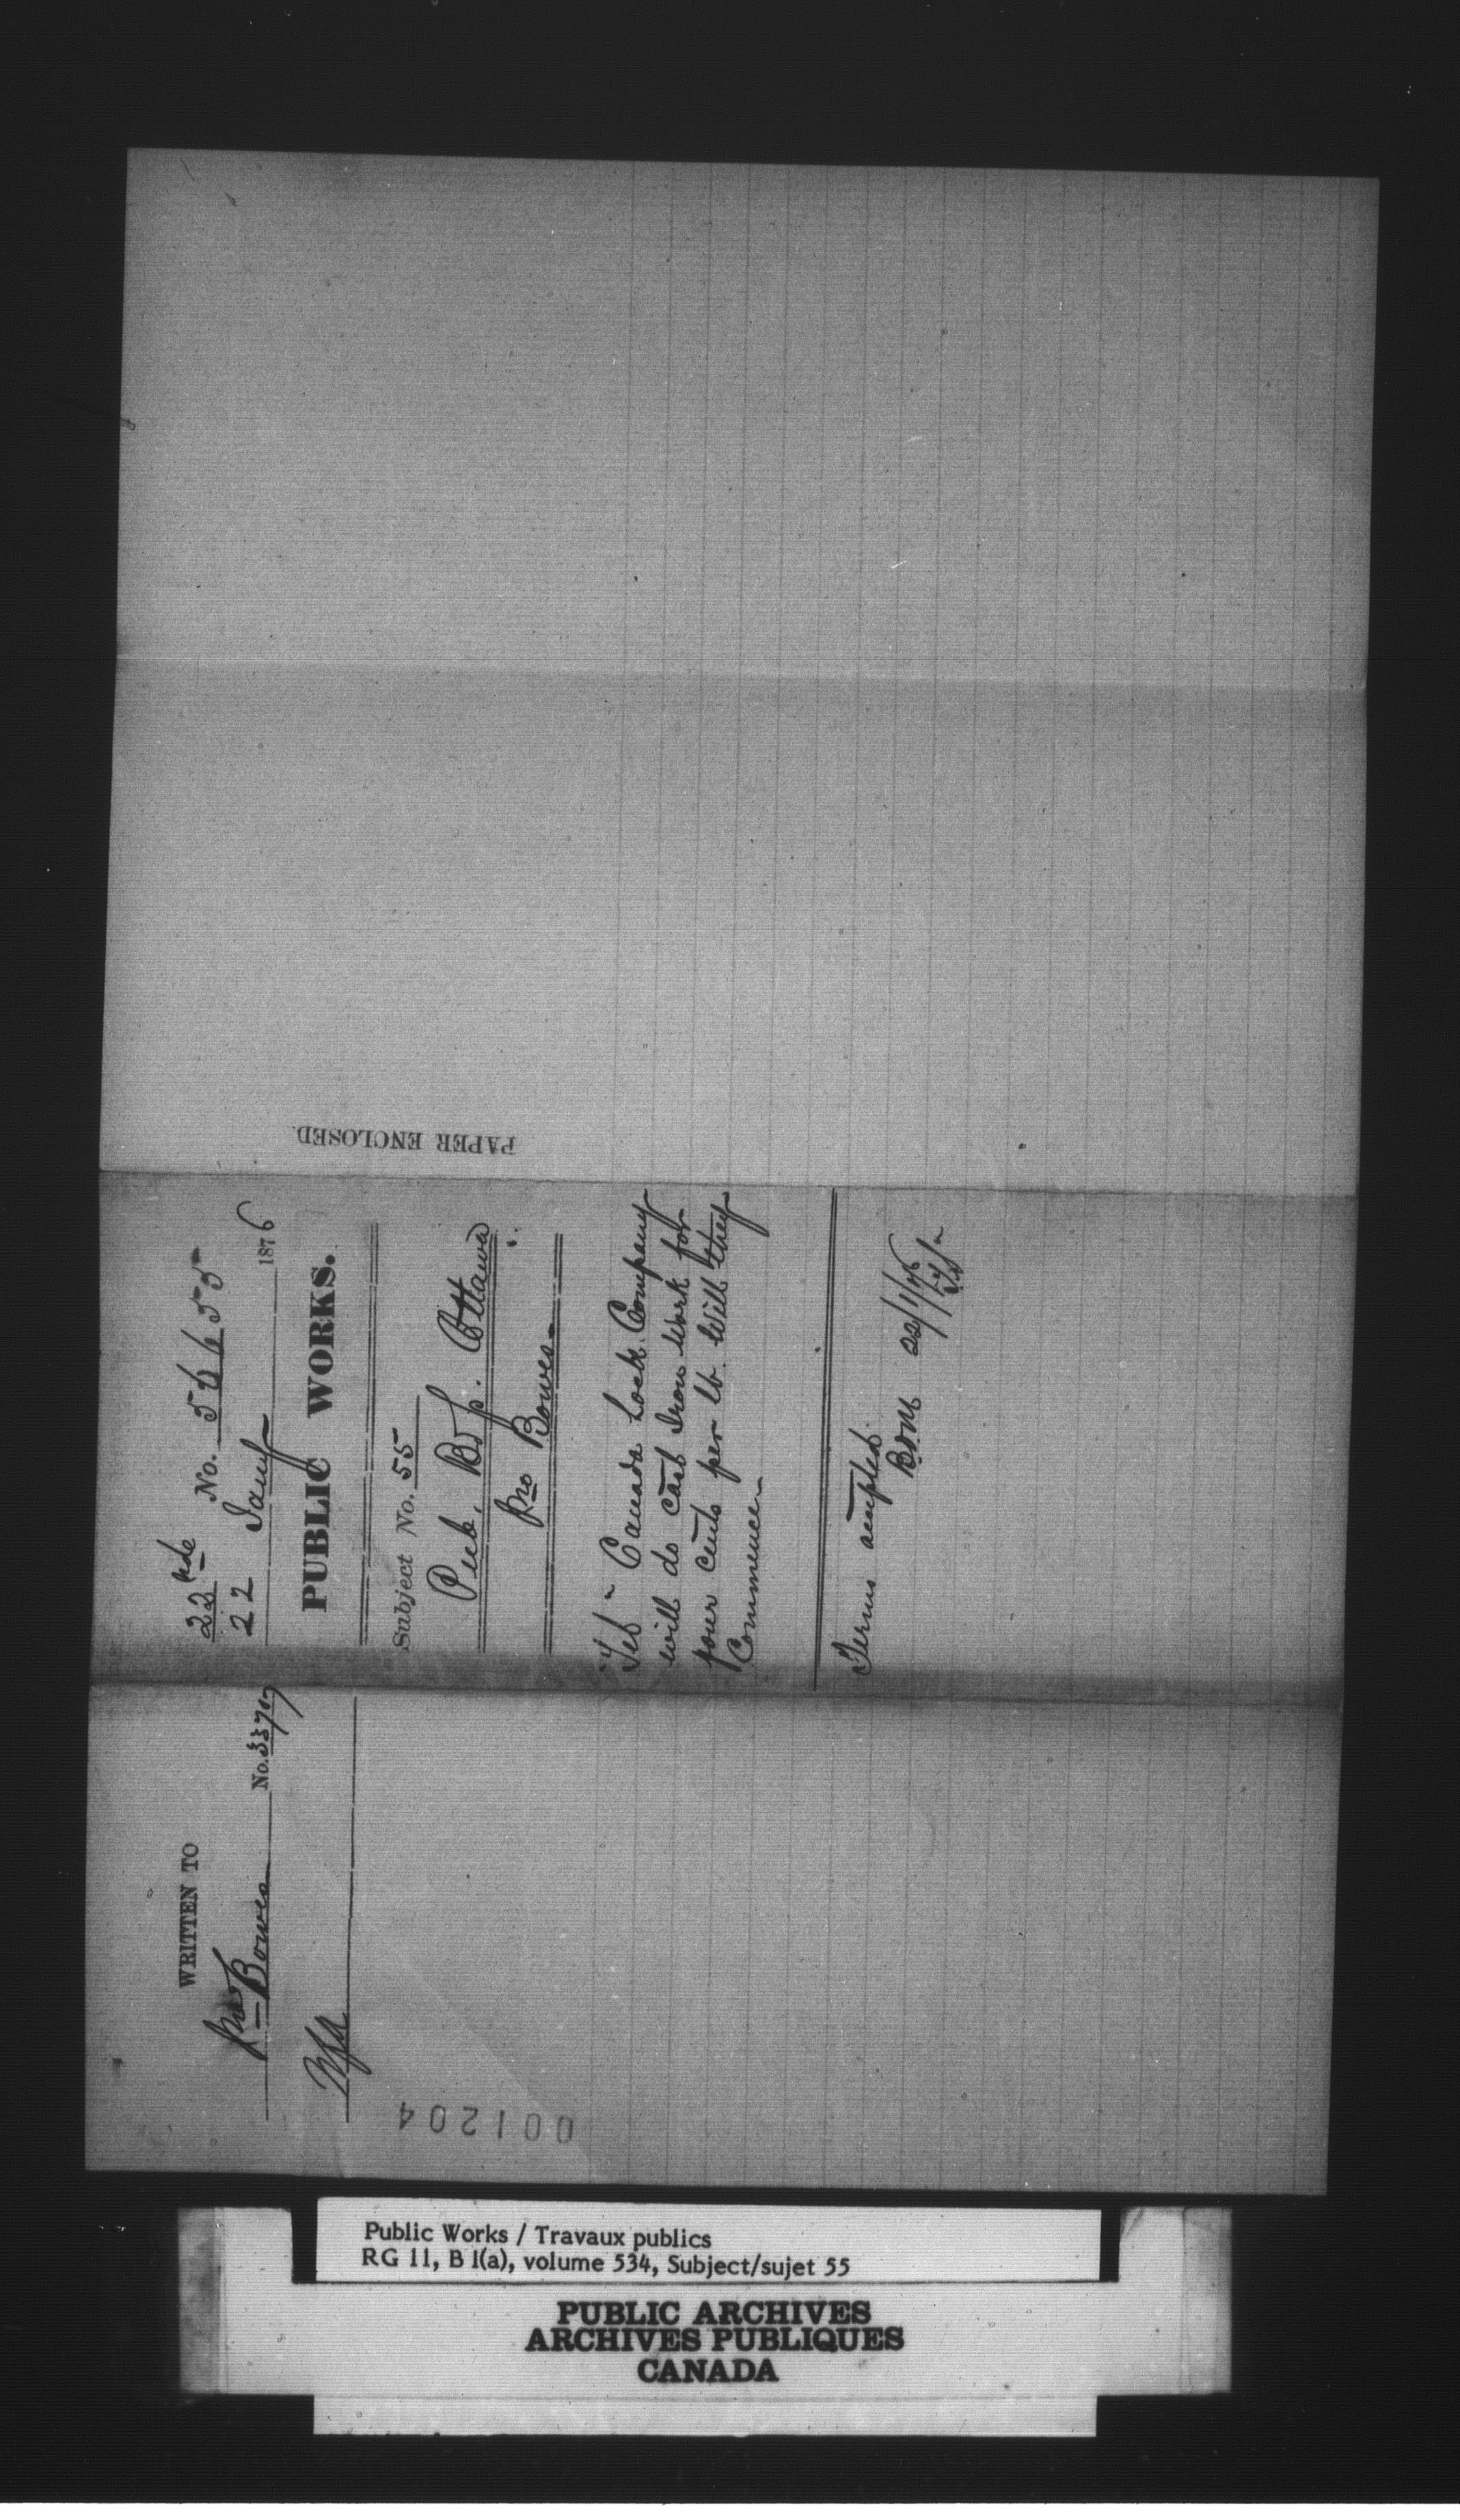 22nde No. 56655
22 Jany 1876
PUBLIC WORKS.
Subject No. 55
Pub. Bdgs. Ottawa
Mr Bowes.
"Tel" Canada Lock Company
will do cast Iron work for
four cents per lb. Will they
Commence.
Terms accepted.
22/1/76
PAPER ENCLOSED.
WRITTEN TO
Mr Bowes No. 33707
001204
Public Works / Travaux publics
RG 11, B 1(a), volume 534, Subject/sujet 55
PUBLIC ARCHIVES
ARCHIVES PUBLIQUES
CANADA